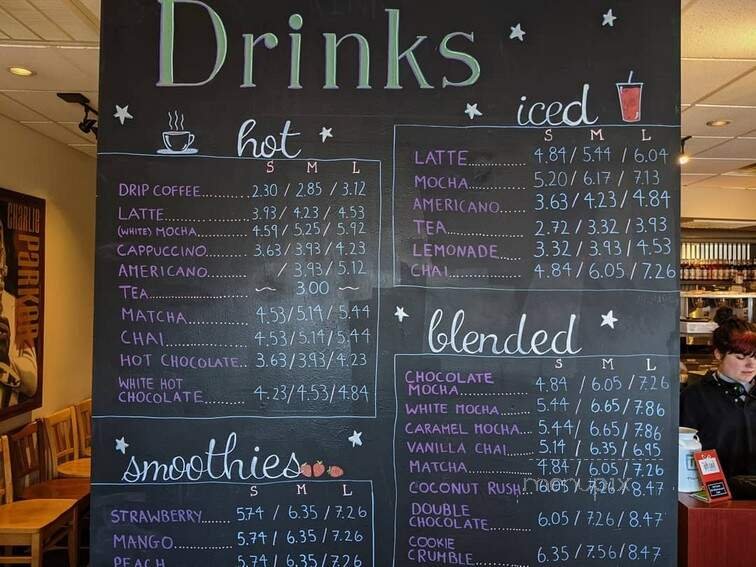 Drinks
hot
S M L
DRIP COFFEE....... 2.30 / 2.85 / 3.12
LATTE............. 3.93 / 4.23 / 4.53
(WHITE) MOCHA..... 4.59 / 5.25 / 5.92
CAPPUCCINO........ 3.63 / 3.93 / 4.23
AMERICANO......... / 3.93 / 5.12
TEA............... ~ 3.00 ~
MATCHA............ 4.53 / 5.14 / 5.44
CHAI.............. 4.53 / 5.14 / 5.44
HOT CHOCOLATE.. 3.63 / 3.93 / 4.23
WHITE HOT
CHOCOLATE......... 4.23 / 4.53 / 4.84
smoothies
S M L
STRAWBERRY....... 5.74 / 6.35 / 7.26
MANGO............ 5.74 / 6.35 / 7.26
PEACH 5.74 / 6.35 / 7.26
iced
S M L
LATTE............ 4.84 / 5.44 / 6.04
MOCHA............ 5.20 / 6.17 / 7.13
AMERICANO........ 3.63 / 4.23 / 4.84
TEA.............. 2.72 / 3.32 / 3.93
LEMONADE......... 3.32 / 3.93 / 4.53
CHAI............. 4.84 / 6.05 / 7.26
blended
S M L
CHOCOLATE
MOCHA............ 4.84 / 6.05 / 7.26
WHITE MOCHA...... 5.44 / 6.65 / 7.86
CARAMEL MOCHA.... 5.44 / 6.65 / 7.86
VANILLA CHAI..... 5.14 / 6.35 / 6.95
MATCHA........... 4.84 / 6.05 / 7.26
COCONUT RUSH.. 6.05 / 7.26 / 8.47
DOUBLE
CHOCOLATE........ 6.05 / 7.26 / 8.47
COOKIE
CRUMBLE.......... 6.35 / 7.56 / 8.47
menupix
CHARLIE
PARKER